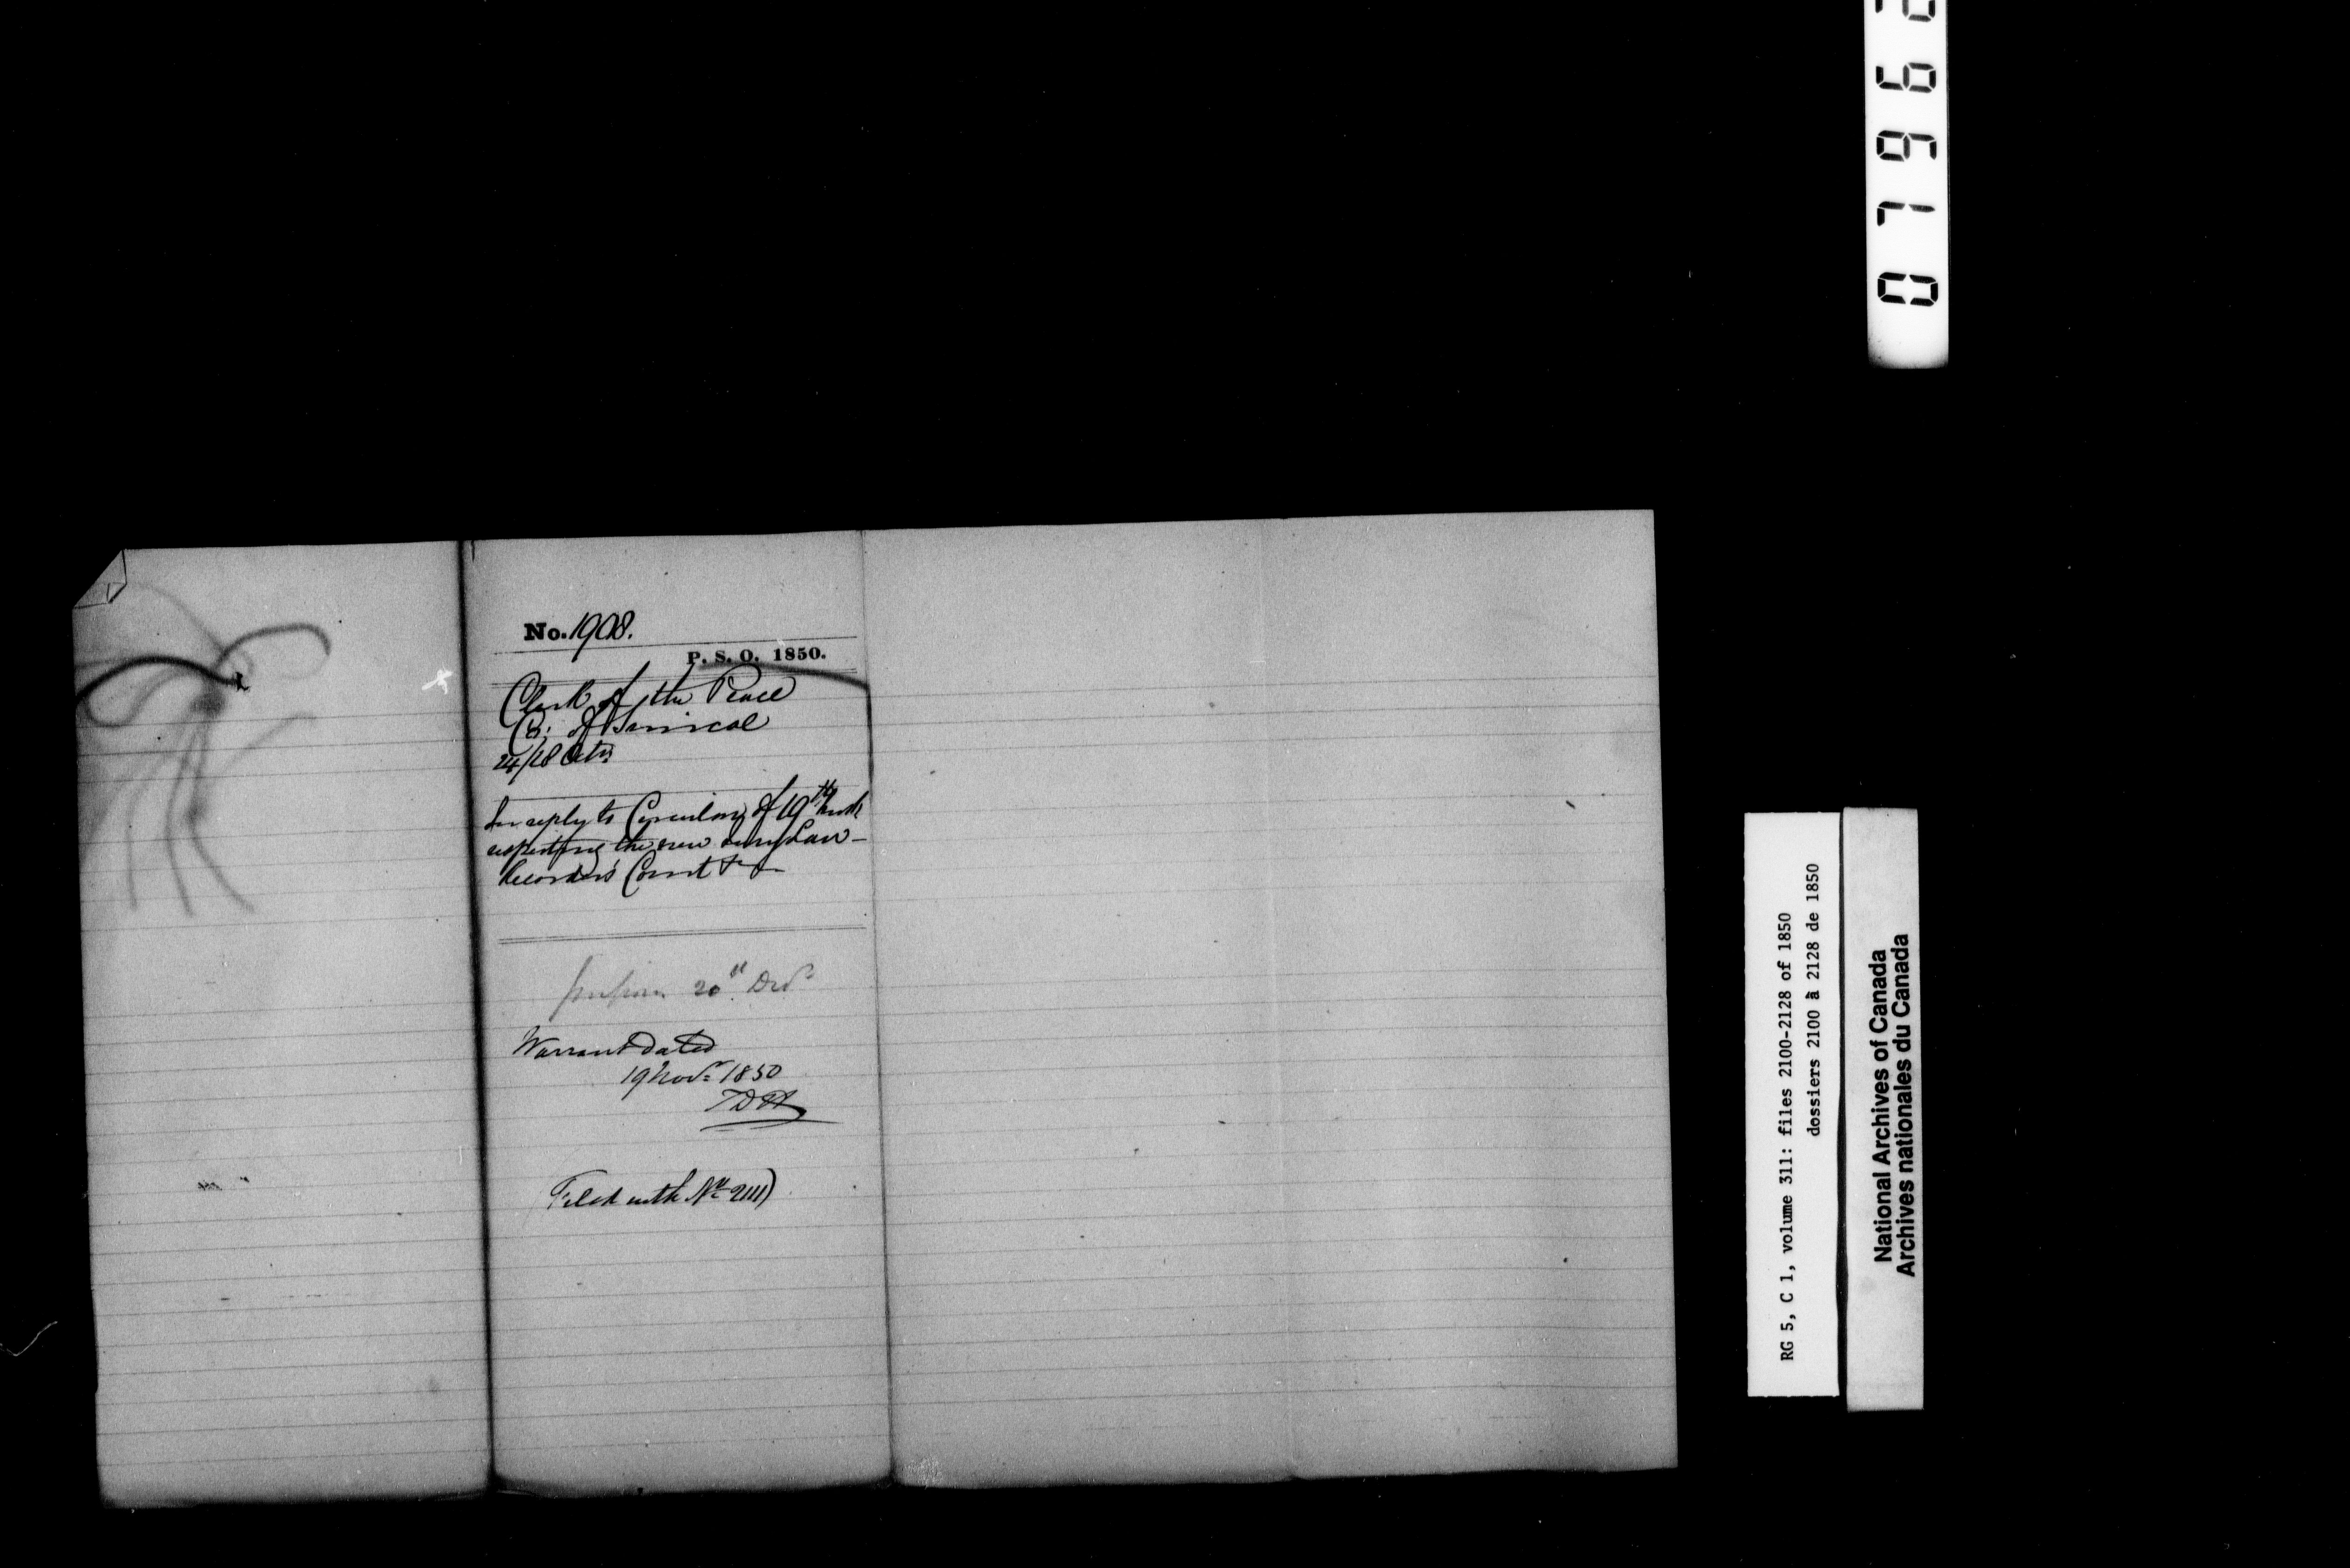 No. 1908.
P. S. O. 1850.
Clerk of the Peace
Co: of Simcoe
24/28 Octr
In reply to Circular of 19th Inst
respecting the new Jury Law -
Recorder's Court &c
20th Decr
Warrant dated
19 Novr 1850
Filed with No 2111)
RG 5, C 1, volume 311: files 2100-2128 of 1850
dossiers 2100 à 2128 de 1850
National Archives of Canada
Archives nationales du Canada
0796